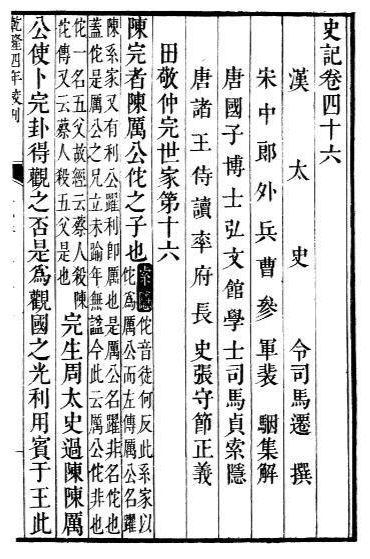 史記卷四十六
漢太史令司馬遷撰
宋中郎外兵曹參軍裴駰集解
唐國子博士弘文館學士司馬貞索隱
唐諸王侍讀率府長史張守節正義
田敬仲完世家第十六
陳完者陳厲公佗之子也索隱佗音徒何反此系家以
佗爲厲公而左傳厲公名躍
陳系家又有利公躍利即厲也是厲公名躍非名佗也
蓋佗是厲公之兄立未踰年無諡今此云厲公佗非也
佗一名五父故經云蔡人殺陳
佗傳又云蔡人殺五父是也
完生周太史過陳陳厲
公使卜完卦得觀之否是爲觀國之光利用賓于王此
乾隆四年校刊